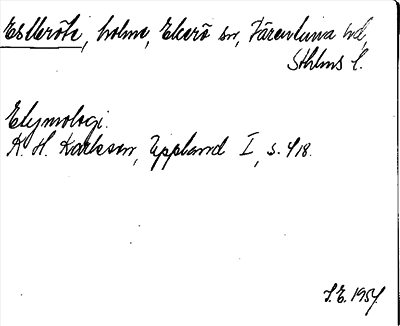 Estbröte, holme, Ekerö sn, Färentuna hd,
Sthlms l.
Etymologi.
K. H. Karlsson, Uppland I, s. 418.
J. E. 1957.